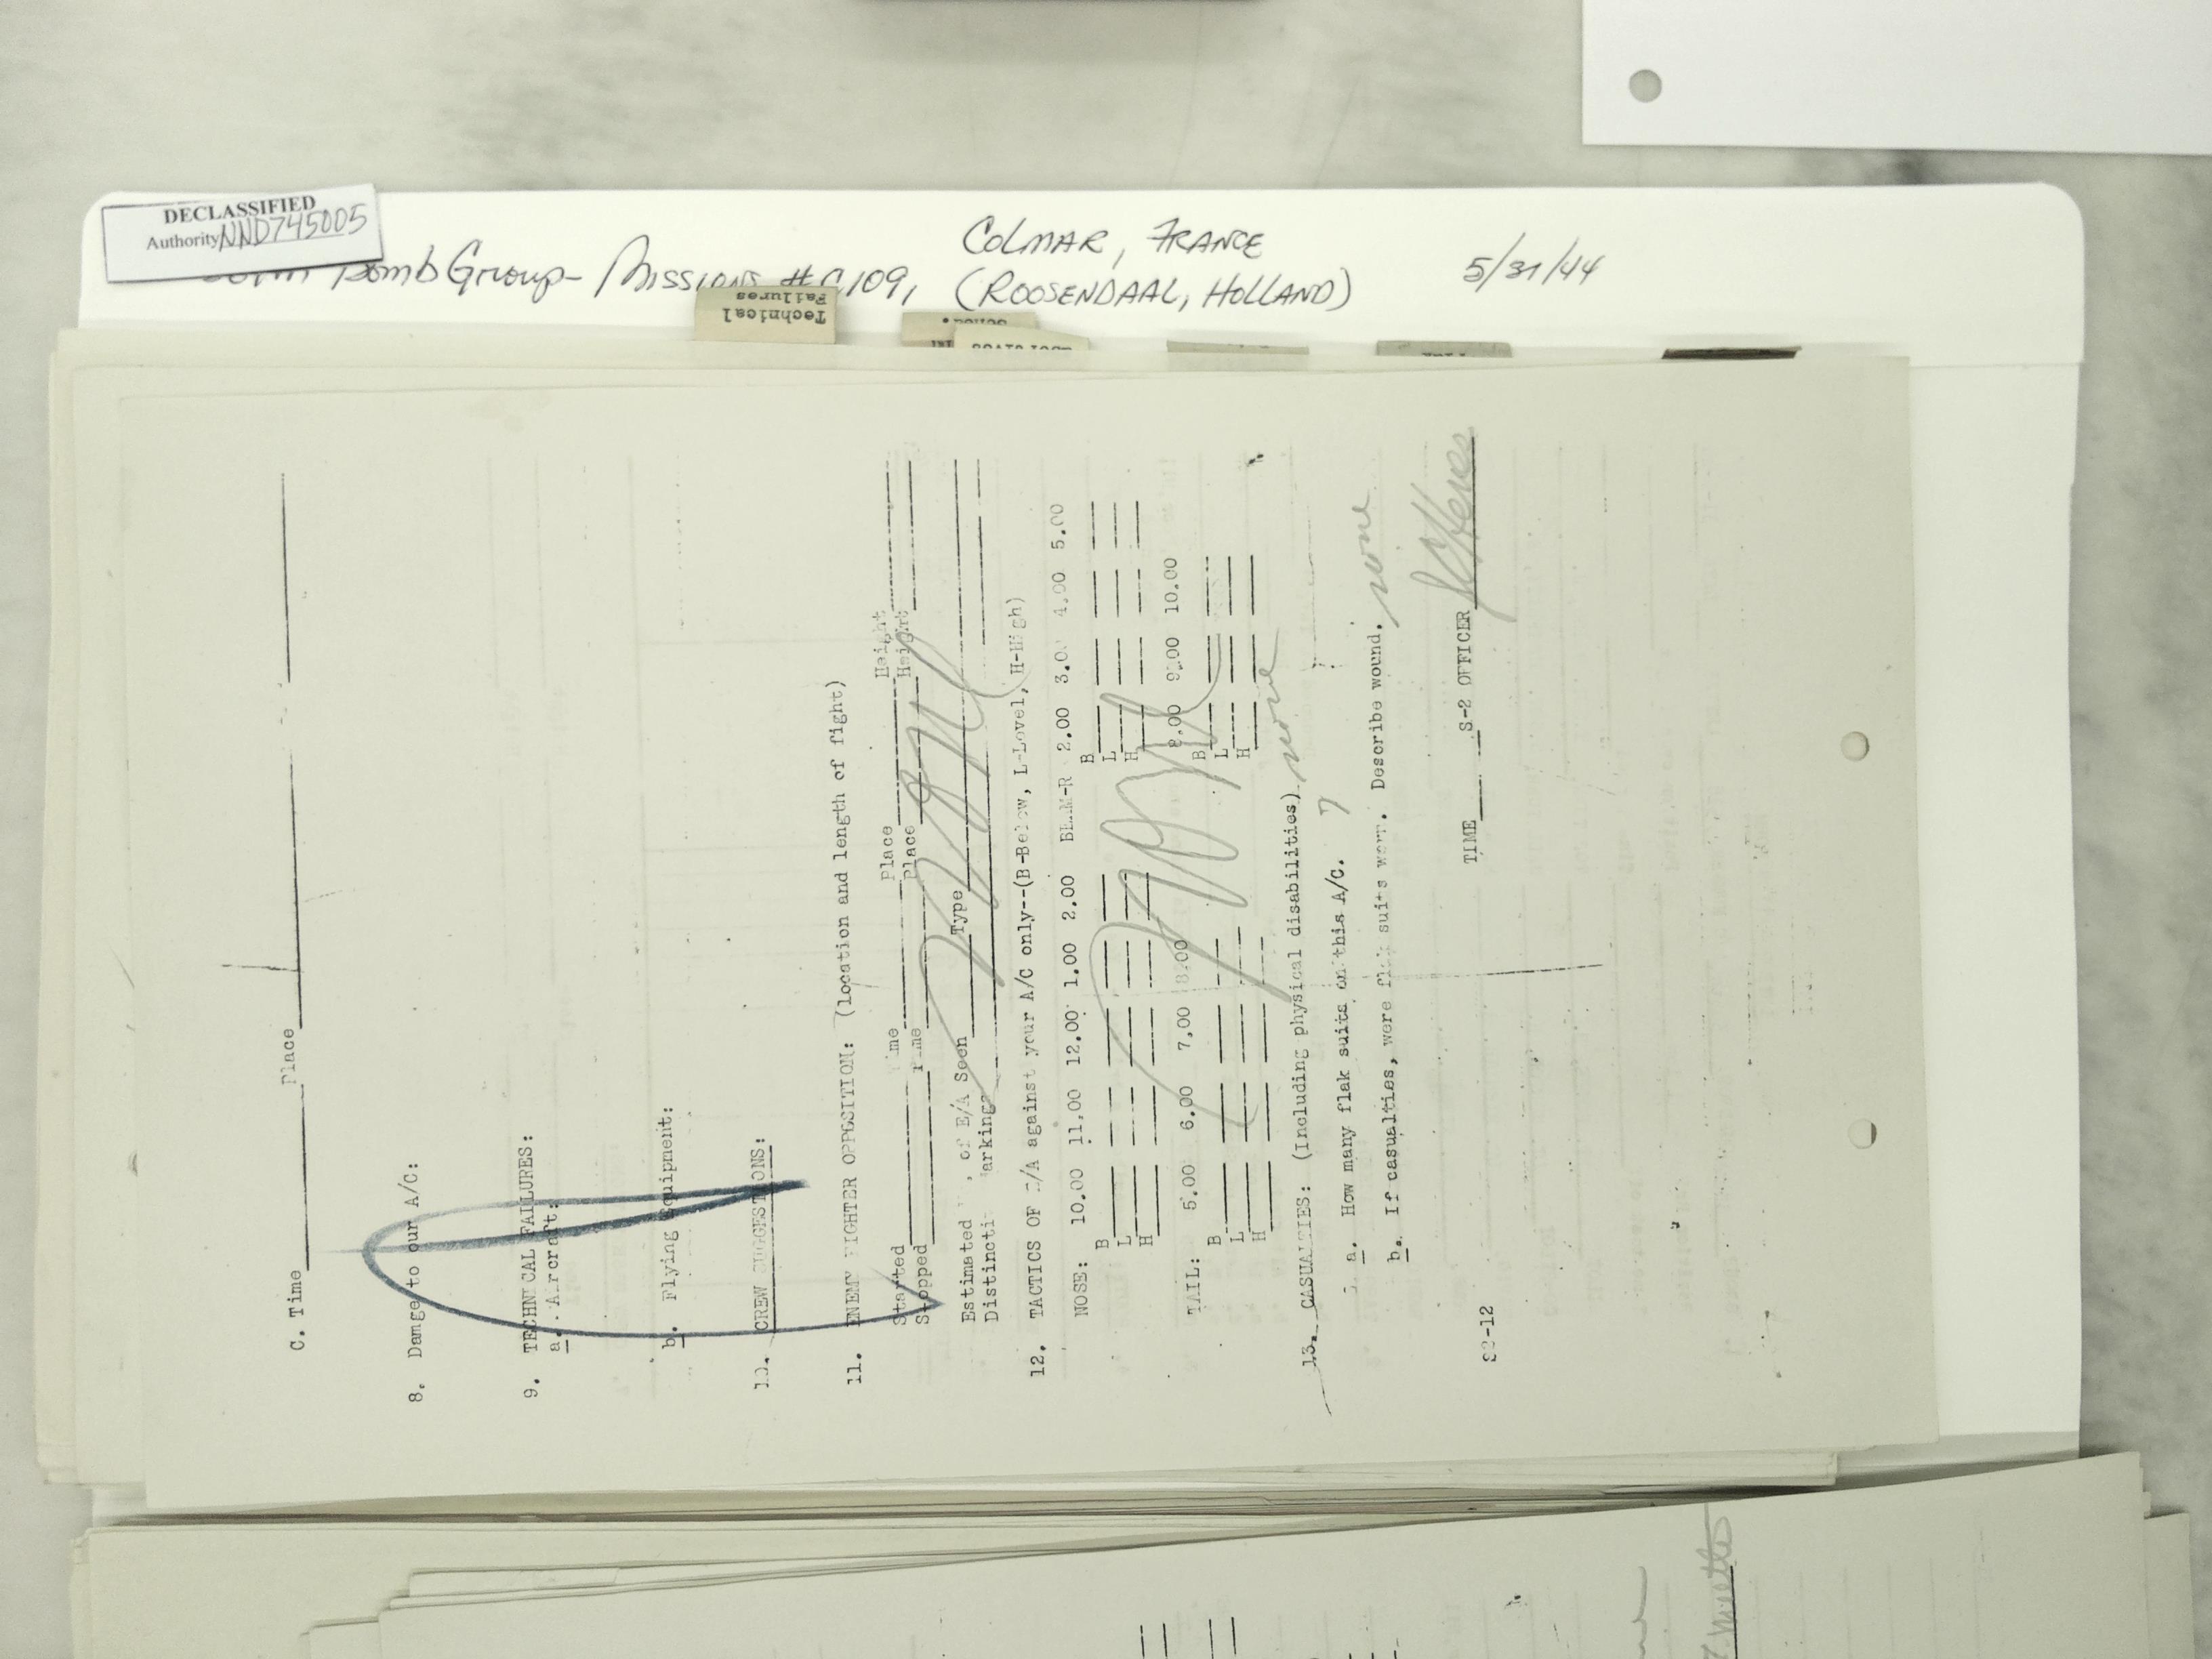 DECLASSIFIED
Authority NND745005
Bomb Group - Missions #C109,
COLMAR, FRANCE
(ROOSENDAAL, HOLLAND)
5/31/44
Technical
Failures
C. Time Place
8. Damge to our A/C:
9. TECHNICAL FAILURES:
a. Aircraft:
b. Flying Equipment:
10. CREW SUGGESTIONS:
11. ENEMY FIGHTER OPPOSITION: (location and length of fight)
Started Time Place Height
Stopped Time Place Height
Estimated of E/A Seen Type
Distincti arkings
12. TACTICS OF E/A against your A/C only--(B-Below, L-Level, H-High)
NOSE: 10.00 11.00 12.00 1.00 2.00 BEAM-R 2.00 3.00 4.00 5.00
B B
L L
H H
TAIL: 5.00 6.00 7.00 8.00 8.00 9.00 10.00
B B
L L
H H
13. CASUALTIES: (Including physical disabilities) none
a. How many flak suits on this A/C. 7
b. If casualties, were flak suits worn. Describe wound. none
TIME S-2 OFFICER
S2-12